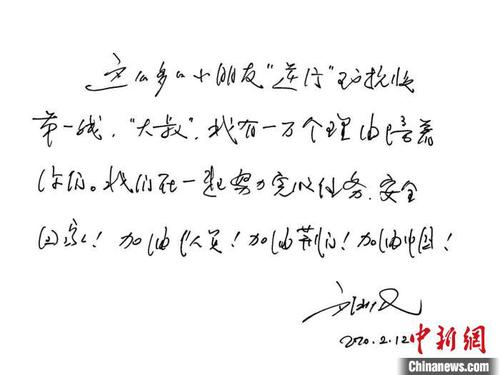 这么多的小朋友“逆行”到抗疫
第一线,“大叔”,我有一万个理由陪着
你们。我们在一起努力完成任务、安全
回家!加油队员!加油荆门!加油中国!
2020.2.12
中新網
Chinanews.com